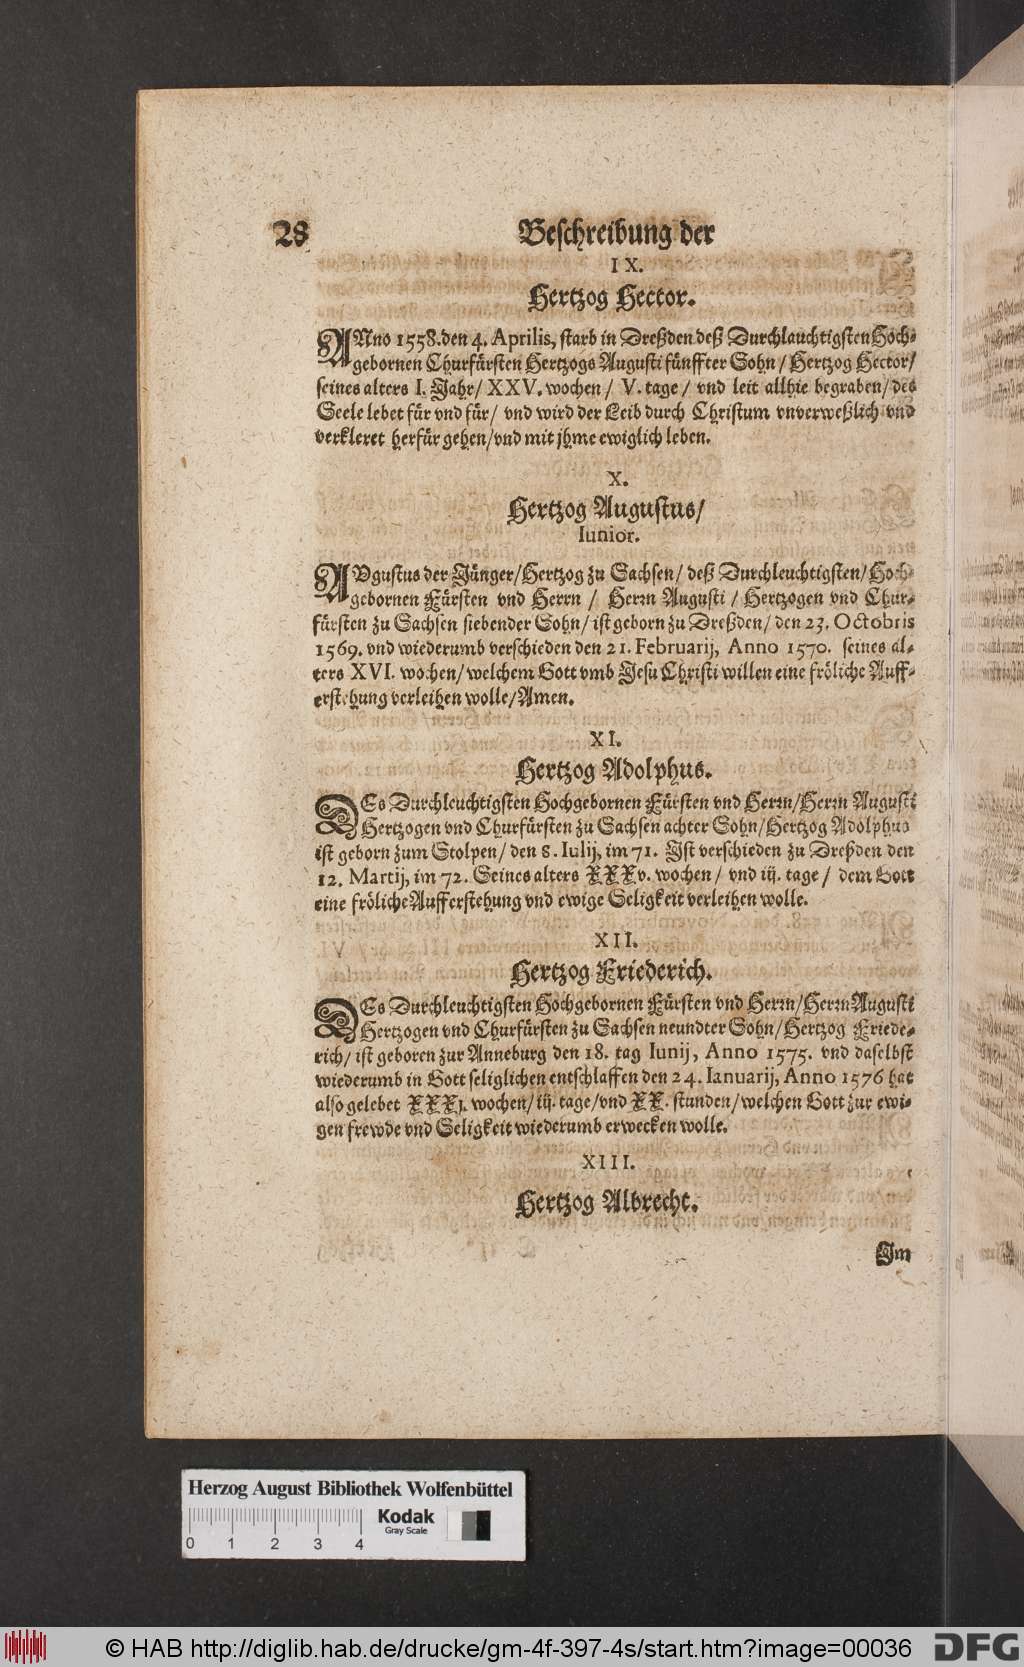 28
Beschreibung der
IX.
Hertzog Hector.
ANno 1558. den 4. Aprilis, starb in Dreßden deß Durchlauchtigsten Hoch-
gebornen Churfürsten Hertzogs Augusti fünffter Sohn / Hertzog Hector/
seines alters I. Jahr/ XXV. wochen / V. tage / vnd leit allhie begraben/ des
Seele lebet für vnd für/ vnd wird der Leib durch Christum vnverweßlich vnd
verkleret herfür gehen/vnd mit jhme ewiglich leben.
X.
Hertzog Augustus/
Iunior.
AVgustus der Jünger/Hertzog zu Sachsen/ deß Durchleuchtigsten/ Hoch-
gebornen Fürsten vnd Herrn / Herrn Augusti / Hertzogen vnd Chur-
fürsten zu Sachsen siebender Sohn/ ist geborn zu Dreßden/ den 23. Octobris
1569. vnd wiederumb verschieden den 21. Februarij, Anno 1570. seines al-
ters XVI. wochen/ welchem Gott vmb Jesu Christi willen eine fröliche Auff-
erstehung verleihen wolle/Amen.
XI.
Hertzog Adolphus.
DEs Durchleuchtigsten Hochgebornen Fürsten vnd Herrn/Herrn Augusti
Hertzogen vnd Churfürsten zu Sachsen achter Sohn/Hertzog Adolphus
ist geborn zum Stolpen/ den 8. Iulij, im 71. Ist verschieden zu Dreßden den
12. Martij, im 72. Seines alters XXXv. wochen/ vnd iij. tage / dem Gott
eine fröliche Aufferstehung vnd ewige Seligkeit verleihen wolle.
XII.
Hertzog Friederich.
DEs Durchleuchtigsten Hochgebornen Fürsten vnd Herrn/Herrn Augusti
Hertzogen vnd Churfürsten zu Sachsen neundter Sohn/Hertzog Friede-
rich/ ist geboren zur Anneburg den 18. tag Iunij, Anno 1575. vnd daselbst
wiederumb in Gott seliglichen entschlaffen den 24. Ianuarij, Anno 1576 hat
also gelebet XXXj. wochen/ iij. tage/vnd XX. stunden/welchen Gott zur ewi-
gen frewde vnd Seligkeit wiederumb erwecken wolle.
XIII.
Hertzog Albrecht.
Im
Herzog August Bibliothek Wolfenbüttel
Kodak
Gray Scale
0 1 2 3 4
© HAB http://diglib.hab.de/drucke/gm-4f-397-4s/start.htm?image=00036
DFG